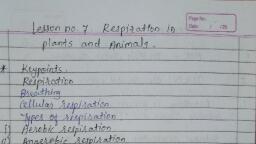 Lesson no. 7 Respiration in
plants and Animals.
Page No.
Date: / /20
* Keypoints.
Respiration
Breathing
Cellular respiration
Types of respiration
i) Aerobic respiration
ii) Anaerobic respiration